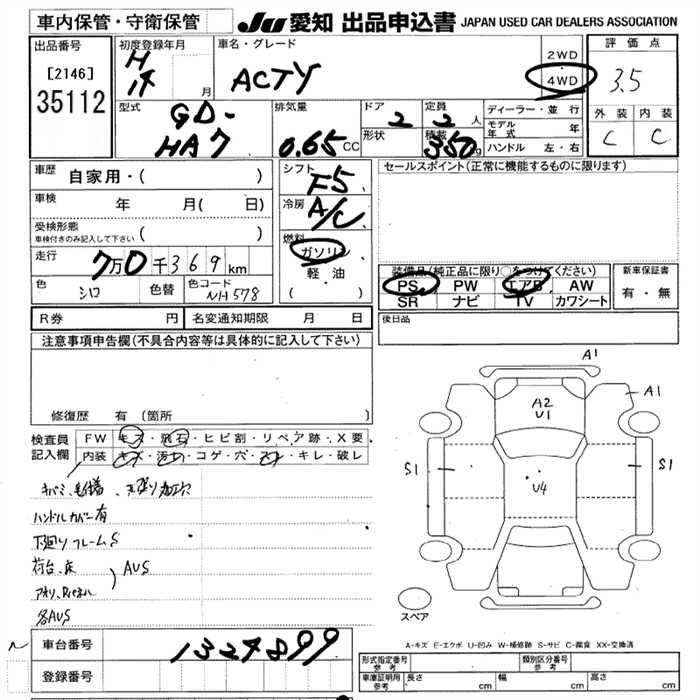 車内保管・守衛保管
JU 愛知 出品申込書 JAPAN USED CAR DEALERS ASSOCIATION
出品番号
[2146]
35112
初度登録年月
H
14 月
車名・グレード
ACTY
2WD
4WD
評価点
3.5
外装 内装
C C
型式
GD-
HA7
排気量
0.65 CC
ドア
2
形状
定員
2 人
積載
350 kg
ディーラー・並行
モデル年式 年
ハンドル 左・右
車歴
自家用・( )
車検
年 月( 日)
受検形態
車検付きのみ記入して下さい ( )
走行
7万0千369km
色
シロ
色替
色コード
NH578
シフト
F5
冷房
A/C
燃料
ガソリン
軽油
( ・ )
セールスポイント(正常に機能するものに限ります)
装備品(純正品に限り○をつけてください)
PS PW エアB AW
SR ナビ TV カワシート
新車保証書
有・無
R券 円 名変通知期限 月 日
後日品
注意事項申告欄(不具合内容等は具体的に記入して下さい)
修復歴 有 (箇所 )
検査員
記入欄
FW キズ・飛石・ヒビ割・リペア跡・X要
内装 キズ・汚れ・コゲ・穴・スレ・キレ・破レ
ハンドルカバー有
下廻りフレームS
荷台、床
AUS
各AUS
A1
A1
A2
U1
S1
S1
U4
スペア
A-キズ E-エクボ U-凹み W-補修跡 S-サビ C-腐食 XX-交換済
車台番号
1324899
登録番号
形式指定番号
参考
類別区分番号
参考
車庫証明用
参考
長さ cm 幅 cm 高さ cm